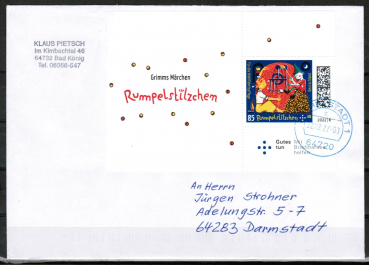 KLAUS PIETSCH
Im Kimbachtal 46
64732 Bad König
Tel. 06063-647
Grimms Märchen
Rumpelstilzchen
85 Rumpelstilzchen
Gutes tun
Mit Briefmarken helfen
64720
An Herrn
Jürgen Strohner
Adelungstr. 5-7
64283 Darmstadt